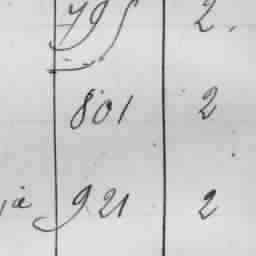 795 2.
801 2
921 2